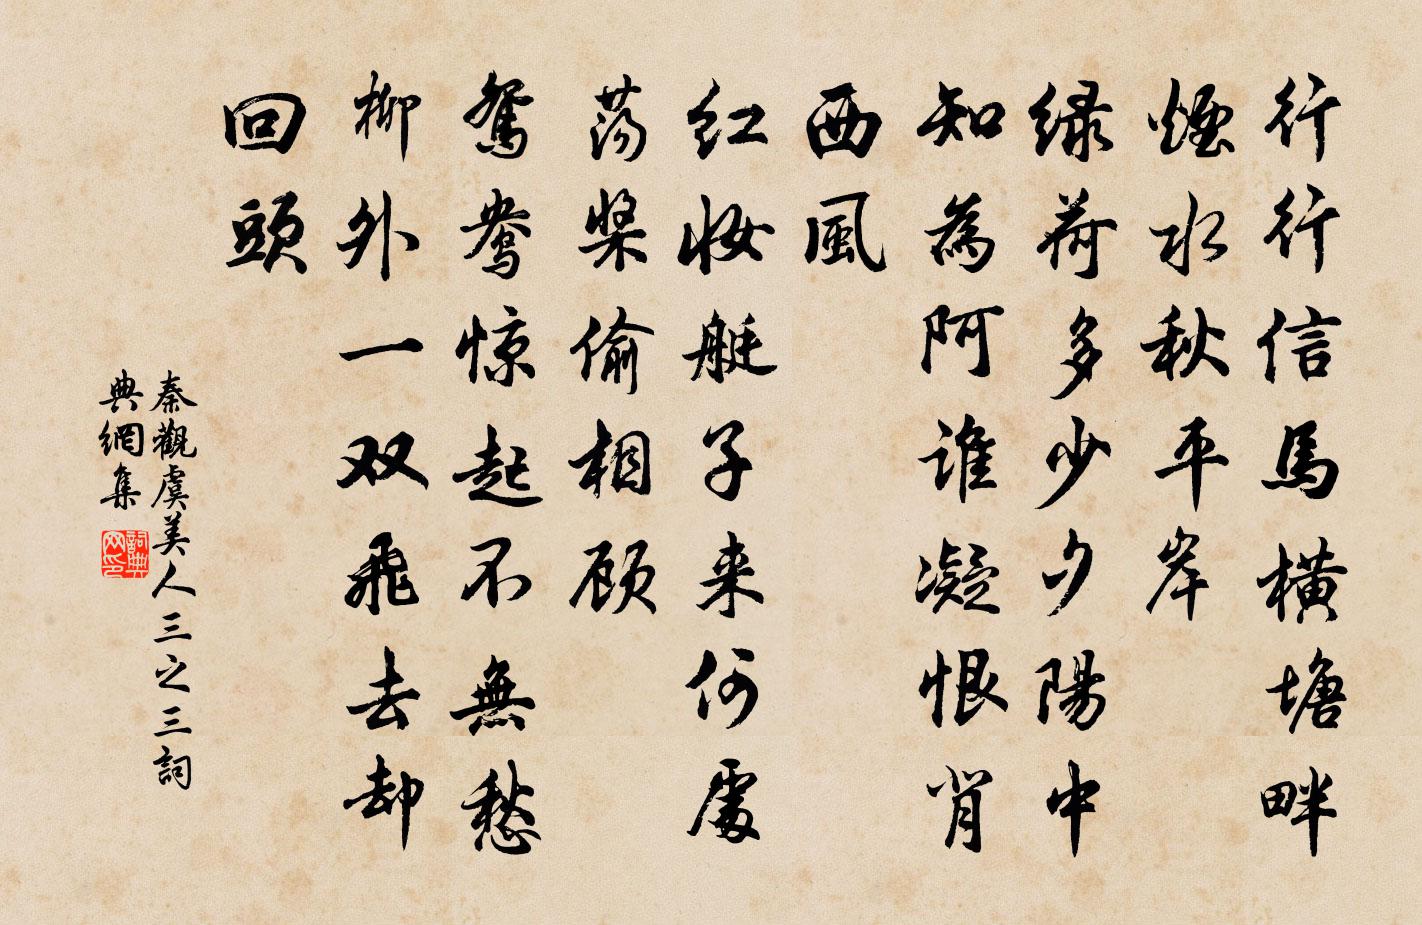 行行信馬橫塘畔
煙水秋平岸
绿荷多少夕陽中
知為阿誰凝恨背
西風
红妝艇子来何處
荡槳偷相顾
鴛鴦惊起不無愁
柳外一双飛去却
回頭
秦觀虞美人三之三詞
典網集
詞典网印